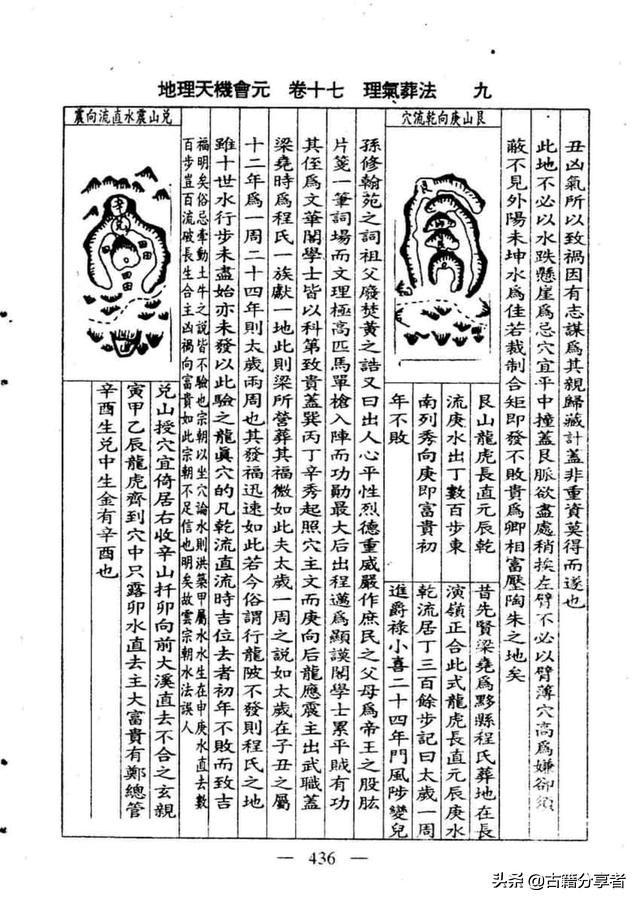 地理天機會元　卷十七　理氣葬法　九
丑凶氣所以致禍因有志謀為其親歸藏計蓋非重資莫得而遂也
此地不必以水跌懸崖為忌穴宜平中撞蓋艮脈欲盡處稍挨左臂不必以臂薄穴高為嫌卻須
蔽不見外陽未坤水為佳若裁制合矩即發不敗貴為卿相富壓陶朱之地矣
艮山庚向乾流穴
艮
艮山龍虎長直元辰乾
流庚水出丁數百步東
南列秀向庚即富貴初
年不敗
昔先賢梁堯為黟縣程氏葬地在長
演嶺正合此式龍虎長直元辰庚水
乾流居丁三百餘步記曰太歲一周
進爵祿小喜二十四年門風陟變兒
孫修翰苑之詞祖父廢焚黃之誥又曰出人心平性烈德重威嚴作庶民之父母為帝王之股肱
片箋一筆詞場而文理極高匹馬單槍入陣而功勛最大后出程邁為顯謨閣學士累平賊有功
其侄為文華閣學士皆以科第致貴蓋巽丙丁辛秀起照穴主文而庚向后龍應震主出武職蓋
梁堯時為程氏一族獻一地此則梁所營葬其福微如此夫太歲一周之說如太歲在子丑之屬
十二年為一周二十四年則太歲兩周也其發福迅速如此若今俗謂行龍陂不發則程氏之地
雖十世水行步未盡始亦未發以此驗之龍眞穴的凡乾流直流時吉位去者初年不敗而致吉
福明矣俗忌牽動土牛之說皆不驗也宗朝以坐穴論水則洪築甲屬水水生在申庚水直去數
百步豈百流破長生合主凶禍向富貴如此宗朝不足信也明矣故雲宗朝水法誤人
兌山震水直流向震
辛兌
田
田
田
兌山授穴宜倚居右收辛山扦卯向前大溪直去不合之玄親
寅甲乙辰龍虎齊到穴中只露卯水直去主大富貴有鄭總管
辛酉生兌中生金有辛酉也
— 436 —
头条 @古籍分享者